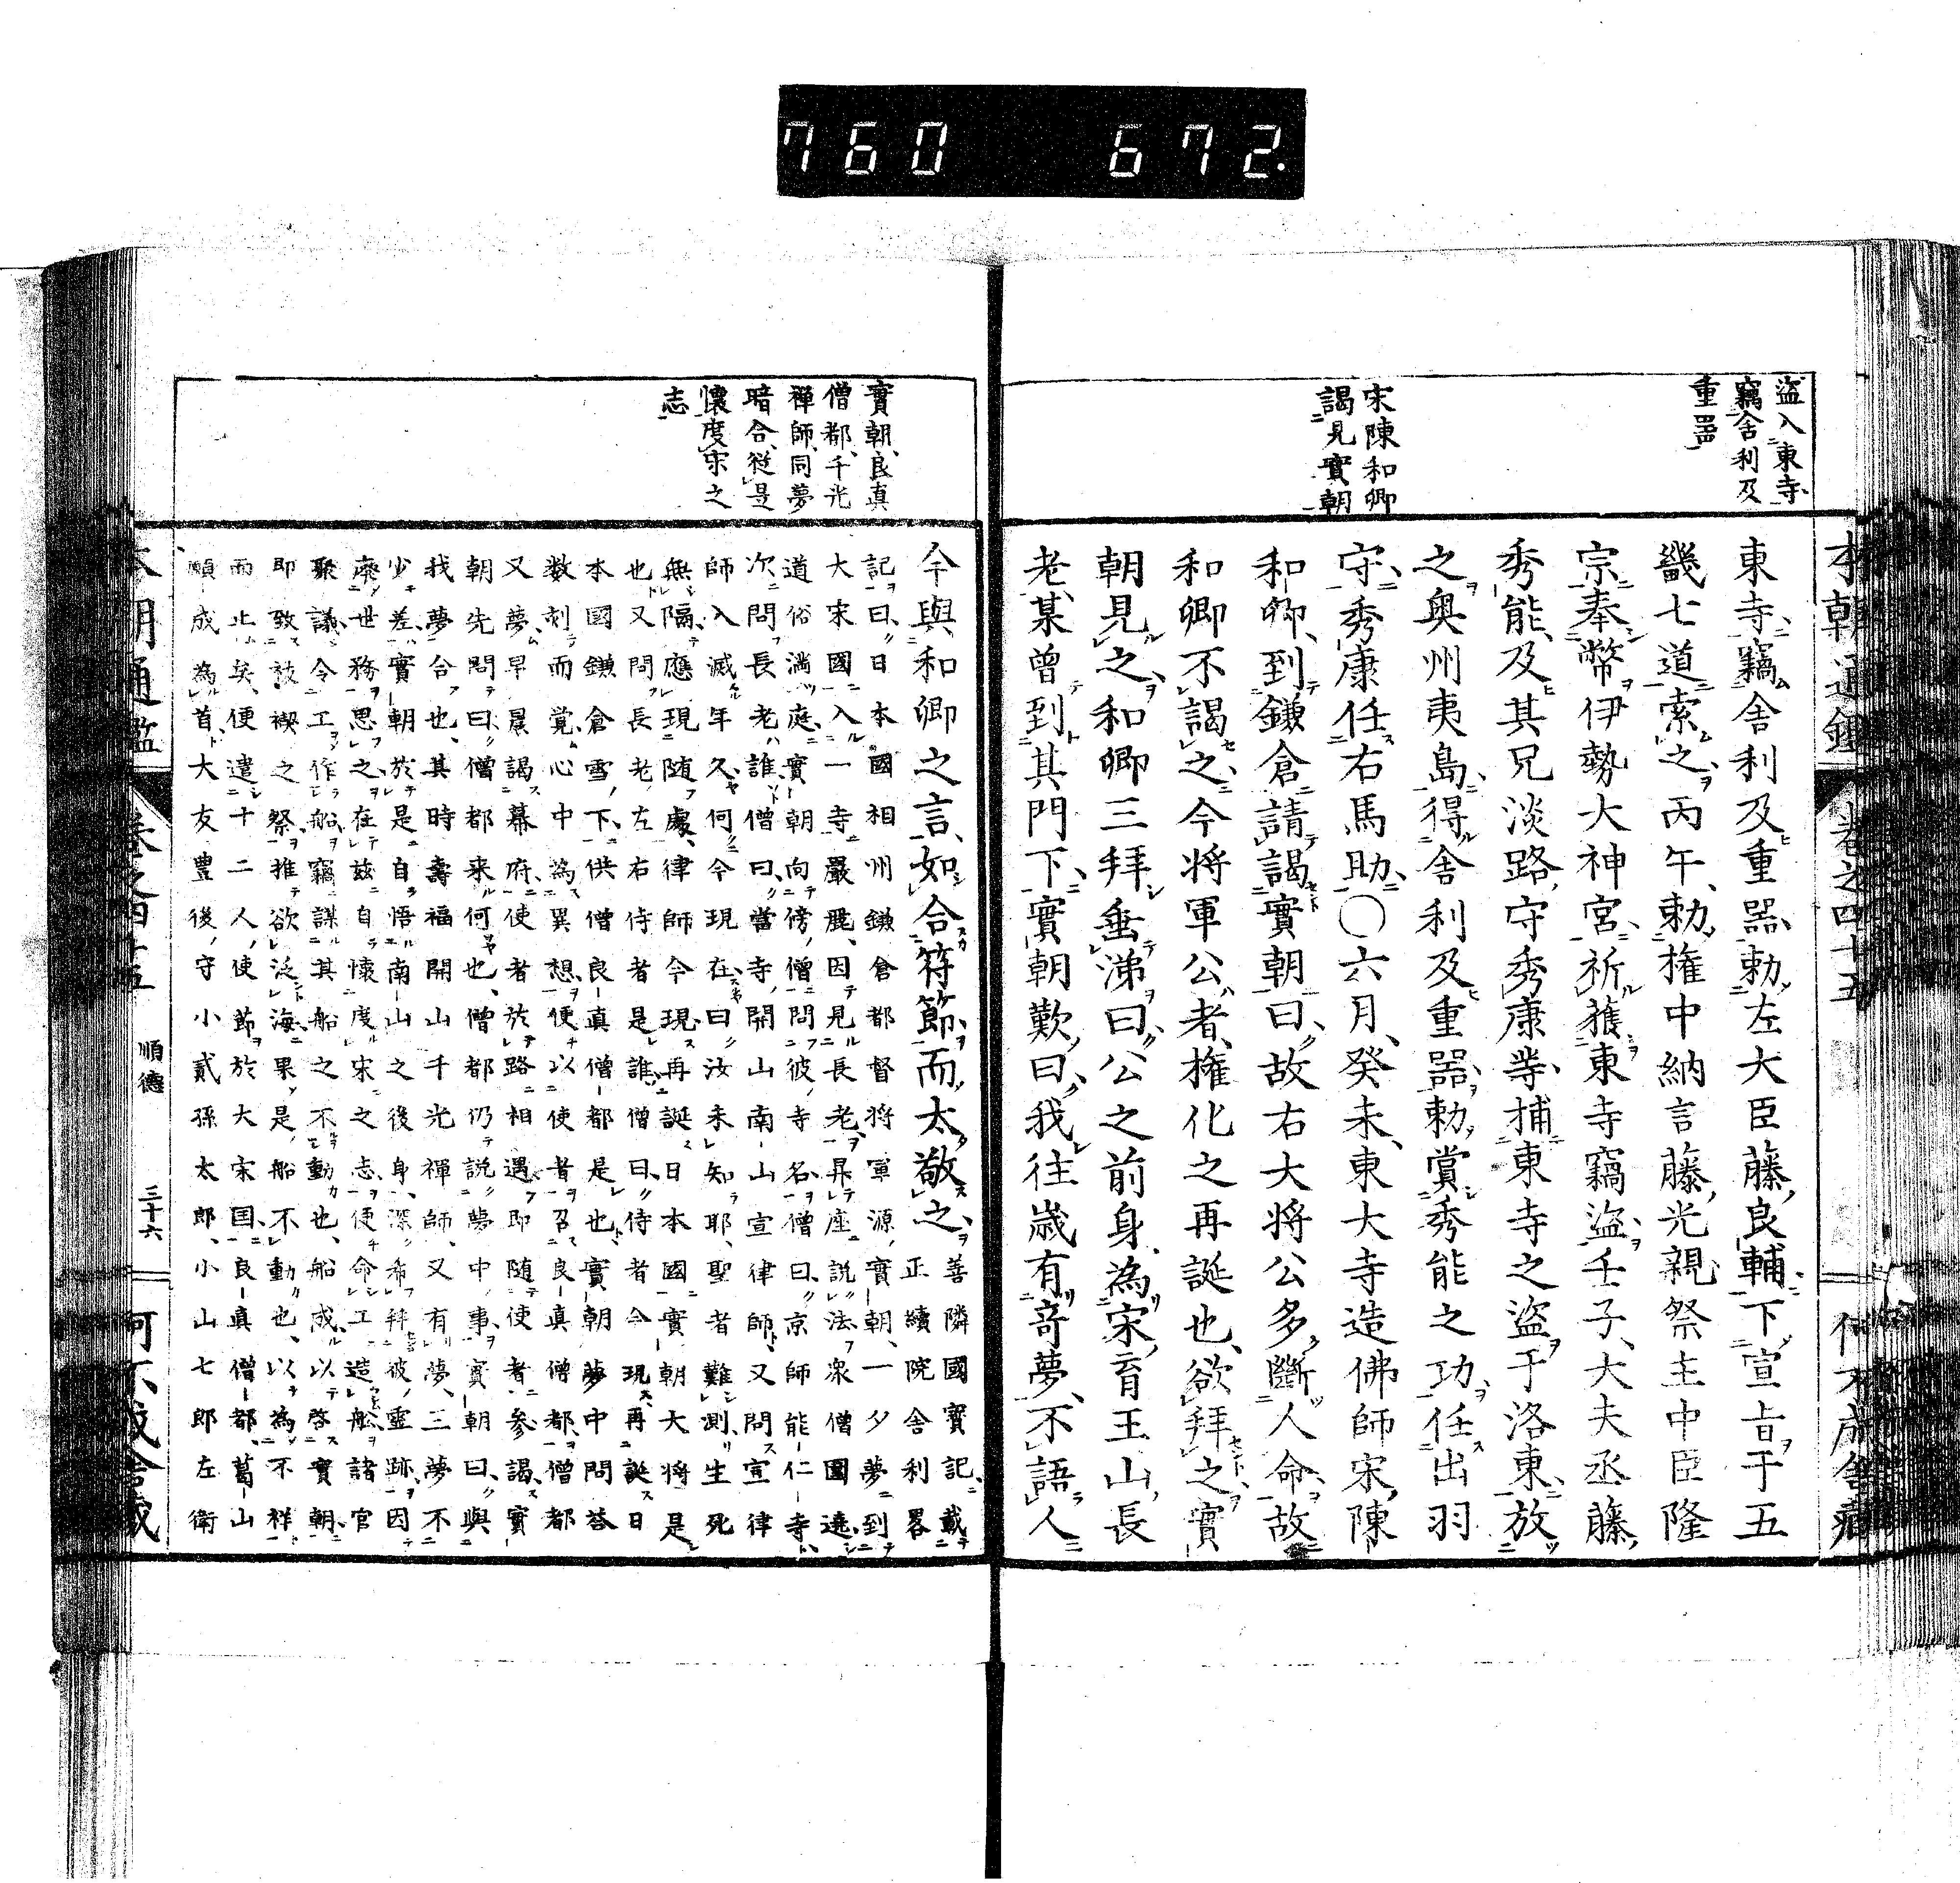 760 672.
本朝通鑑 卷之四十五
盗入東寺
竊舍利及
重噐
宋陳和卿
謁見實朝
東寺竊舍利及重噐勅左大臣藤良輔下宣旨于五
畿七道索之丙午勅權中納言藤光親祭主中臣隆
宗奉幣伊勢大神宮祈獲東寺竊盗壬子大夫丞藤
秀能及其兄淡路守秀康等捕東寺之盗于洛東放
之奥州夷島得舍利及重噐勅賞秀能之功任出羽
守秀康任右馬助〇六月癸未東大寺造佛師宋陳
和卿到鎌倉請謁實朝曰故右大将公多斷人命故
和卿不謁之今将軍公者權化之再誕也欲拜之實
朝見之和卿三拜垂涕曰公之前身為宋育王山長
老某曾到其門下實朝歎曰我往歳有竒夢不語人
實朝良真
僧都千光
禅師同夢
暗合從是
懷度宋之
志
今與和卿之言如合符節而太敬之
善隣國寶記載
正續院舍利畧
記曰日本國相州鎌倉都督将軍源實朝一夕夢到
大宋國入一寺嚴麗因見長老昇座説法衆僧圍遶
道俗満庭實朝向傍僧問彼寺名僧曰京師能仁寺
次問長老誰僧曰當寺開山南山宣律師又問宣律
師入滅年久何今現在曰汝未知耶聖者難測生死
無隔應現随處律師今現再誕日本國實朝大将是
也又問長老左右侍者是誰僧曰侍者今現再誕日
本國鎌倉雪下供僧良真僧都是也實朝夢中問答
数刻而覚心中為異想便以使者召良真僧都僧都
又夢早晨謁幕府使者於路相遇即随使者參謁實
朝先問曰僧都来何也僧都仍説夢中事實朝曰與
我夢合也其時壽福開山千光禅師又有夢三夢不
少差實朝於是自悟南山之後身深希拜彼靈跡因
廢世務思之在玆自懷度宋之志便命工造舩諸官
聚議令工作船竊謀其船之不動也船成以啓實朝
即致祓禊之祭推欲泛海果是船不動也以為不祥
而止矣便遣十二人使節於大宋国良真僧都葛山
願成為首大友豊後守小貳孫太郎小山七郎左衛
本朝通鑑 卷之四十五 順德 三十六